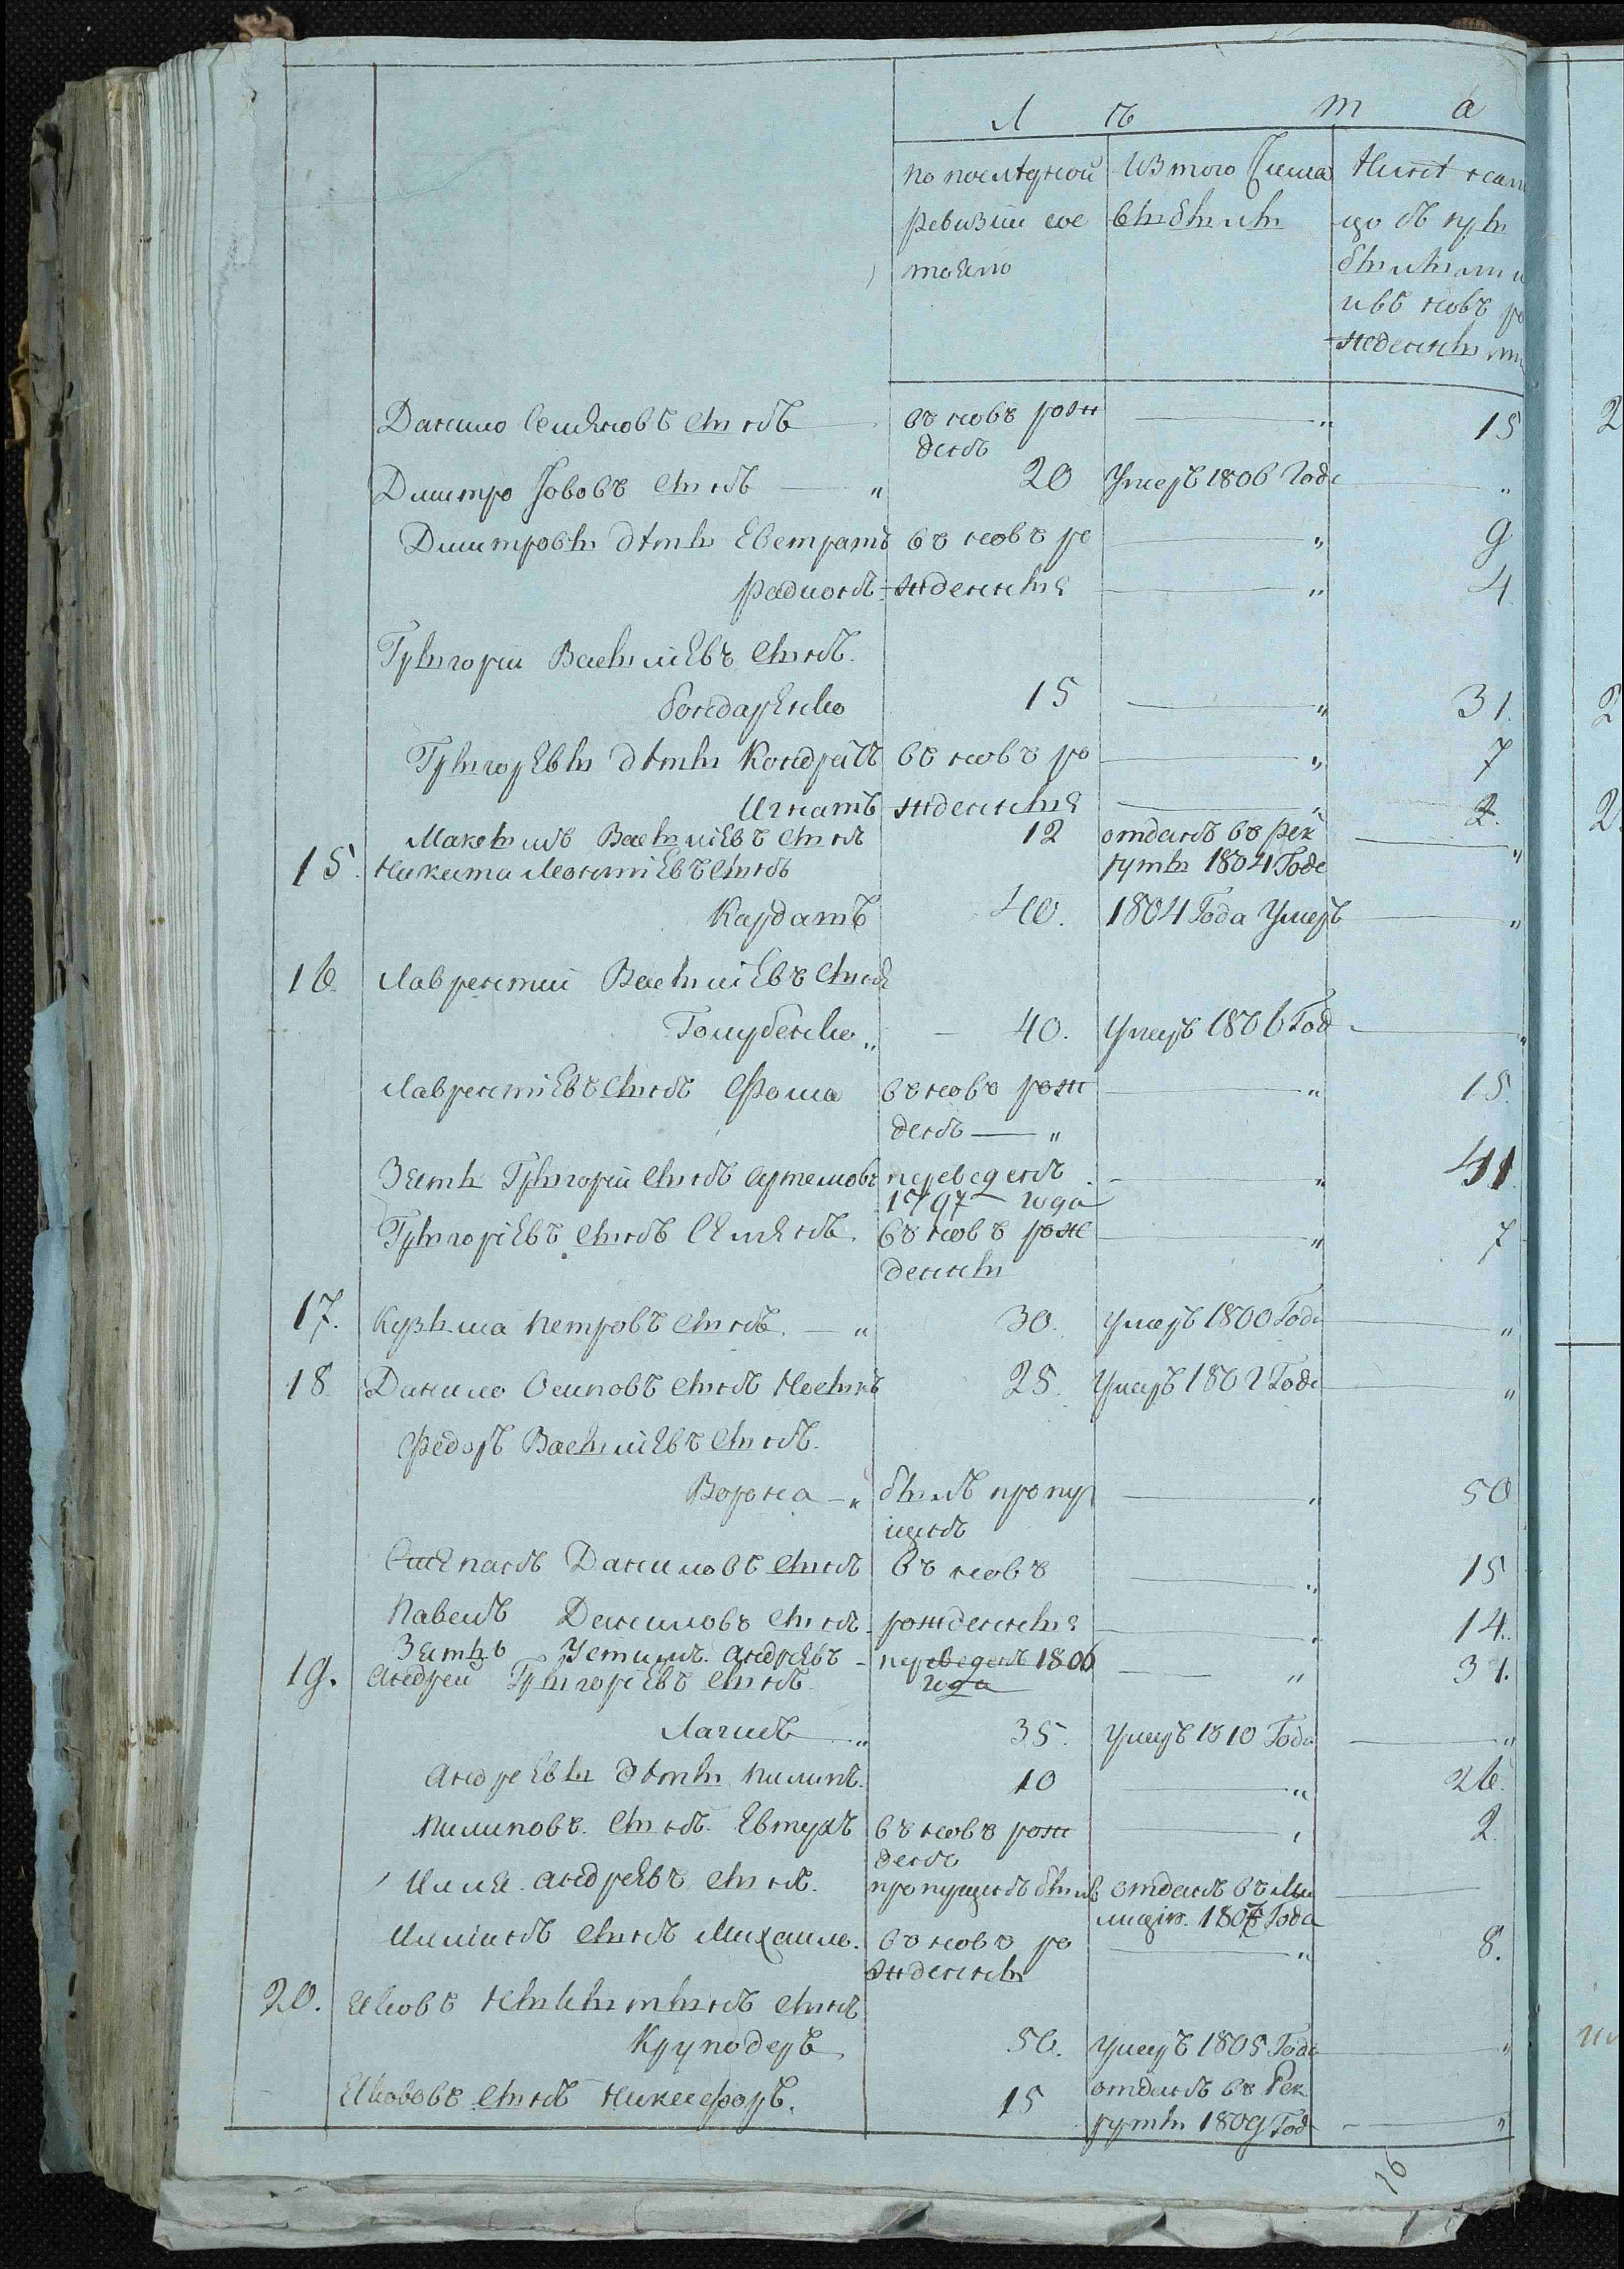 Лѣта
по послѣдней Изъ того Числа Ныне налы
ревизии сос выбыли цо съ при
тояло былыми и
и въ новъ ро
жденными
Данило Семеновъ сынъ въ новъ рож " 15
денъ
Дмитро Іововъ сынъ " 20 Умеръ 1806 Года "
Дмитровы дѣти Евстратъ въ новъ ро " 9
Радионъ жденныя " 4
Григорий Васильевъ сынъ
Бондаренко 15 " 31.
Григорьевы дѣти Кондратъ въ новъ ро " 7
Игнатъ жденныя " 2.
Максимъ Васильевъ сынъ 12 отданъ въ рек
15. Никита Леонтиевъ сынъ руты 1804 Года "
Кардашъ 40. 1804 Года Умеръ "
16. Лаврентий Васильевъ сынъ
Голубенко " 40. Умеръ 1806 Год "
Лаврентиевъ сынъ Фома въ новъ рож " 15.
денъ "
Зять Григорий сынъ Артемовъ переведенъ " 41
1797 года
Григориевъ сынъ Семенъ въ новъ рож " 7
денны
17. Кузьма Петровъ сынъ " 30. Умеръ 1800 Года "
18. Данило Осиповъ сынъ Носикъ 25. Умеръ 1802 Года "
Федоръ Васильевъ сынъ
Ворона " былъ пропу " 50
щенъ
Степанъ Даниловъ сынъ въ новъ " 15
Павелъ Даниловъ сынъ рожденныя " 14.
Зять Устимъ Андреевъ переведенъ 1806
19. Андрей Григориевъ сынъ года " 31.
35. Умеръ 1810 Года "
Андреевы дѣти Пилипъ 10 " 26.
Пилиповъ сынъ Евтухъ въ новъ рож " 2.
денъ
Илля Андреевъ сынъ пропущенъ былъ отданъ въ Ми
лицію 1807 Года
Иллинъ сынъ Михаило въ новъ ро " 8.
жденны
20. Яковъ Никитинъ сынъ
Круподеръ 50. Умеръ 1805 Года "
Якововъ сынъ Никифоръ. 15 отданъ въ Рек
руты 1809 Год "
16